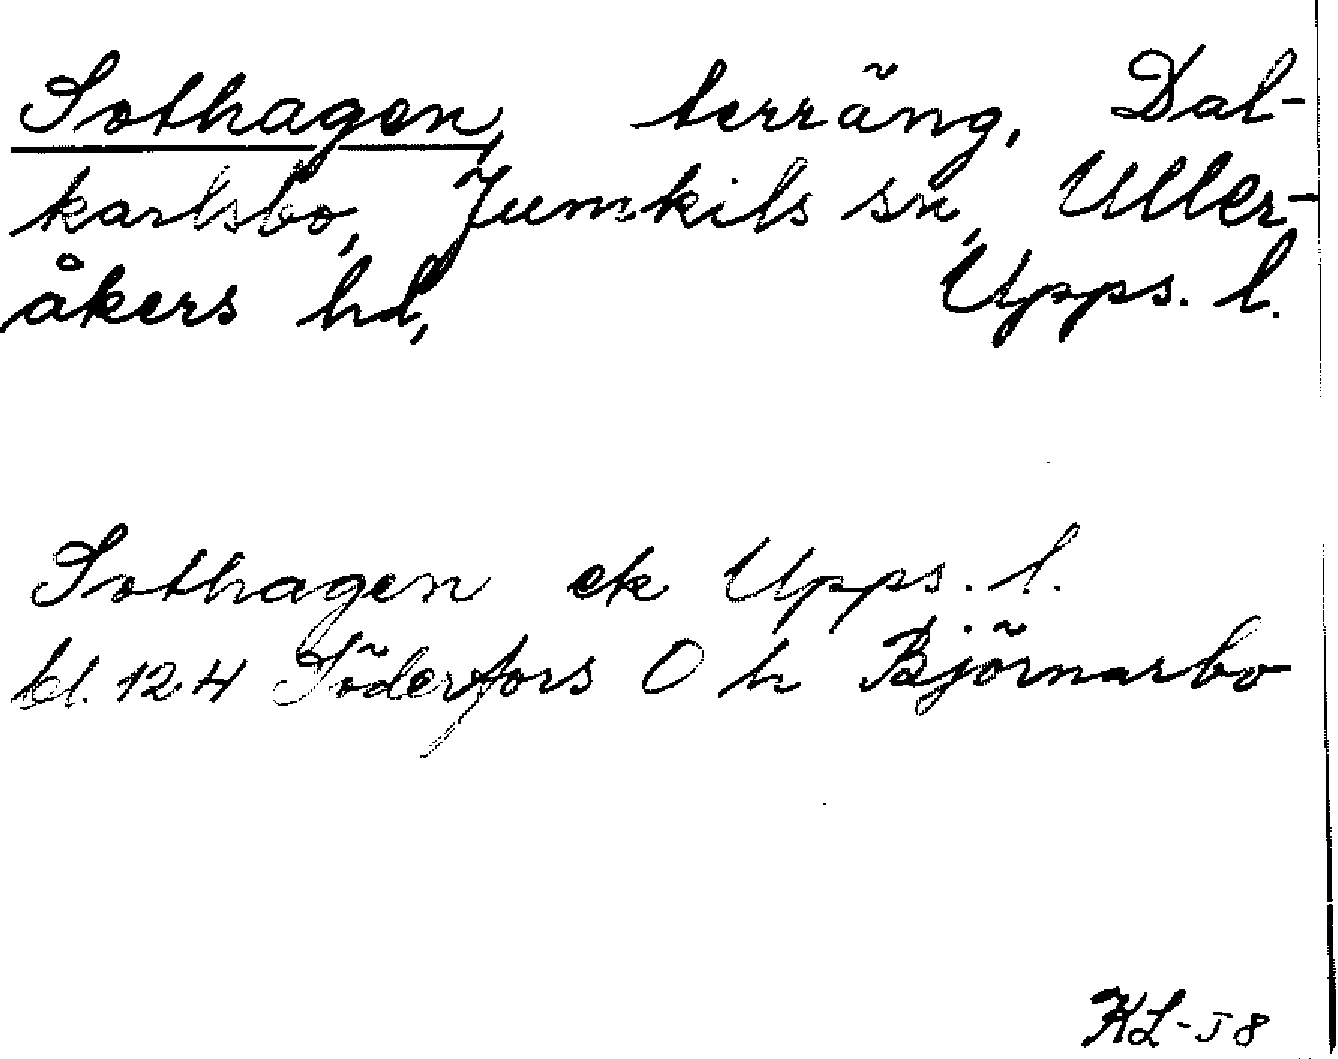 Sothagen, terräng, Dal-
karlsbo, Jumkils sn, Uller-
åkers hd, Upps. l.
Sothagen ek Upps. l.
bl. 124 Söderfors O h Björnarbo
KL-58